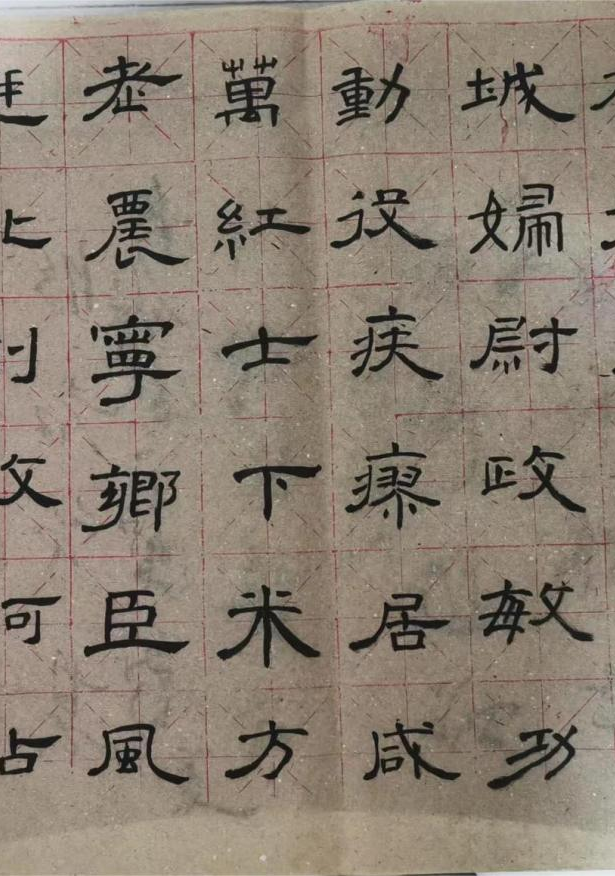 城婦尉政敏功
動役疾瘳居咸
萬紅士下米方
老農寧鄉臣風
上刂攵可占